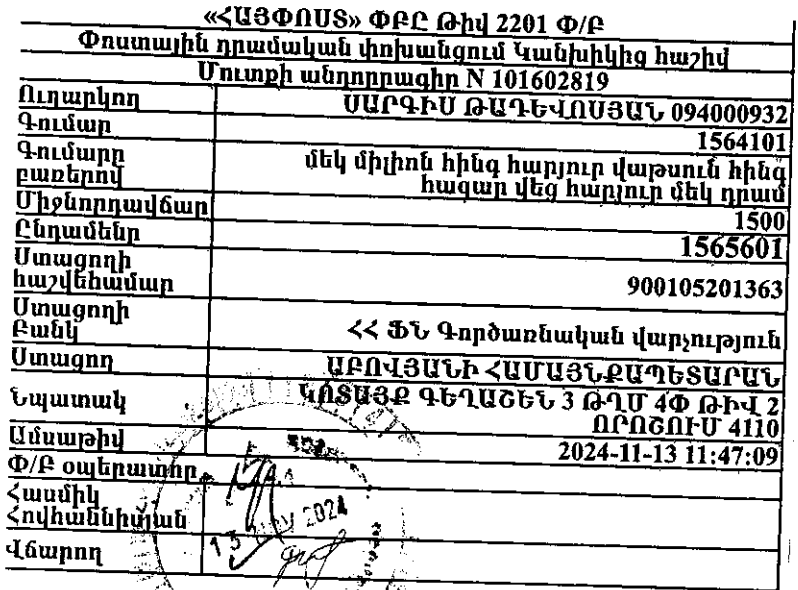 «ՀԱՅՓՈՍՏ» ՓԲԸ Թիվ 2201 Փ/Բ
Փոստային դրամական փոխանցում Կանխիկից հաշիվ
Մուտքի անդորրագիր N 101602819
Ուղարկող ՍԱՐԳԻՍ ԹԱԴԵՎՈՍՅԱՆ 094000932
Գումար 1564101
Գումարը բառերով մեկ միլիոն հինգ հարյուր վաթսուն հինգ
հազար վեց հարյուր մեկ դրամ
Միջնորդավճար 1500
Ընդամենը 1565601
Ստացողի
հաշվեհամար 900105201363
Ստացողի
Բանկ ՀՀ ՖՆ Գործառնական վարչություն
Ստացող ԱԲՈՎՅԱՆԻ ՀԱՄԱՅՆՔԱՊԵՏԱՐԱՆ
Նպատակ ԿՈՏԱՅՔ ԳԵՂԱՇԵՆ 3 ԹՂՄ 4Փ ԹԻՎ 2
ՈՐՈՇՈՒՄ 4110
Ամսաթիվ 2024-11-13 11:47:09
Փ/Բ օպերատոր
Հասմիկ
Հովհաննիսյան
Վճարող
13 NOV 2024